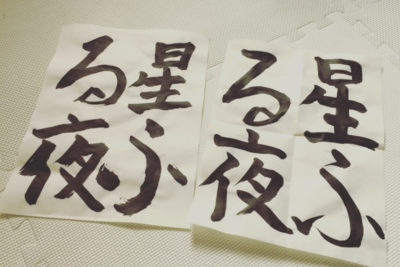 星ふ
る夜
星ふ
る夜